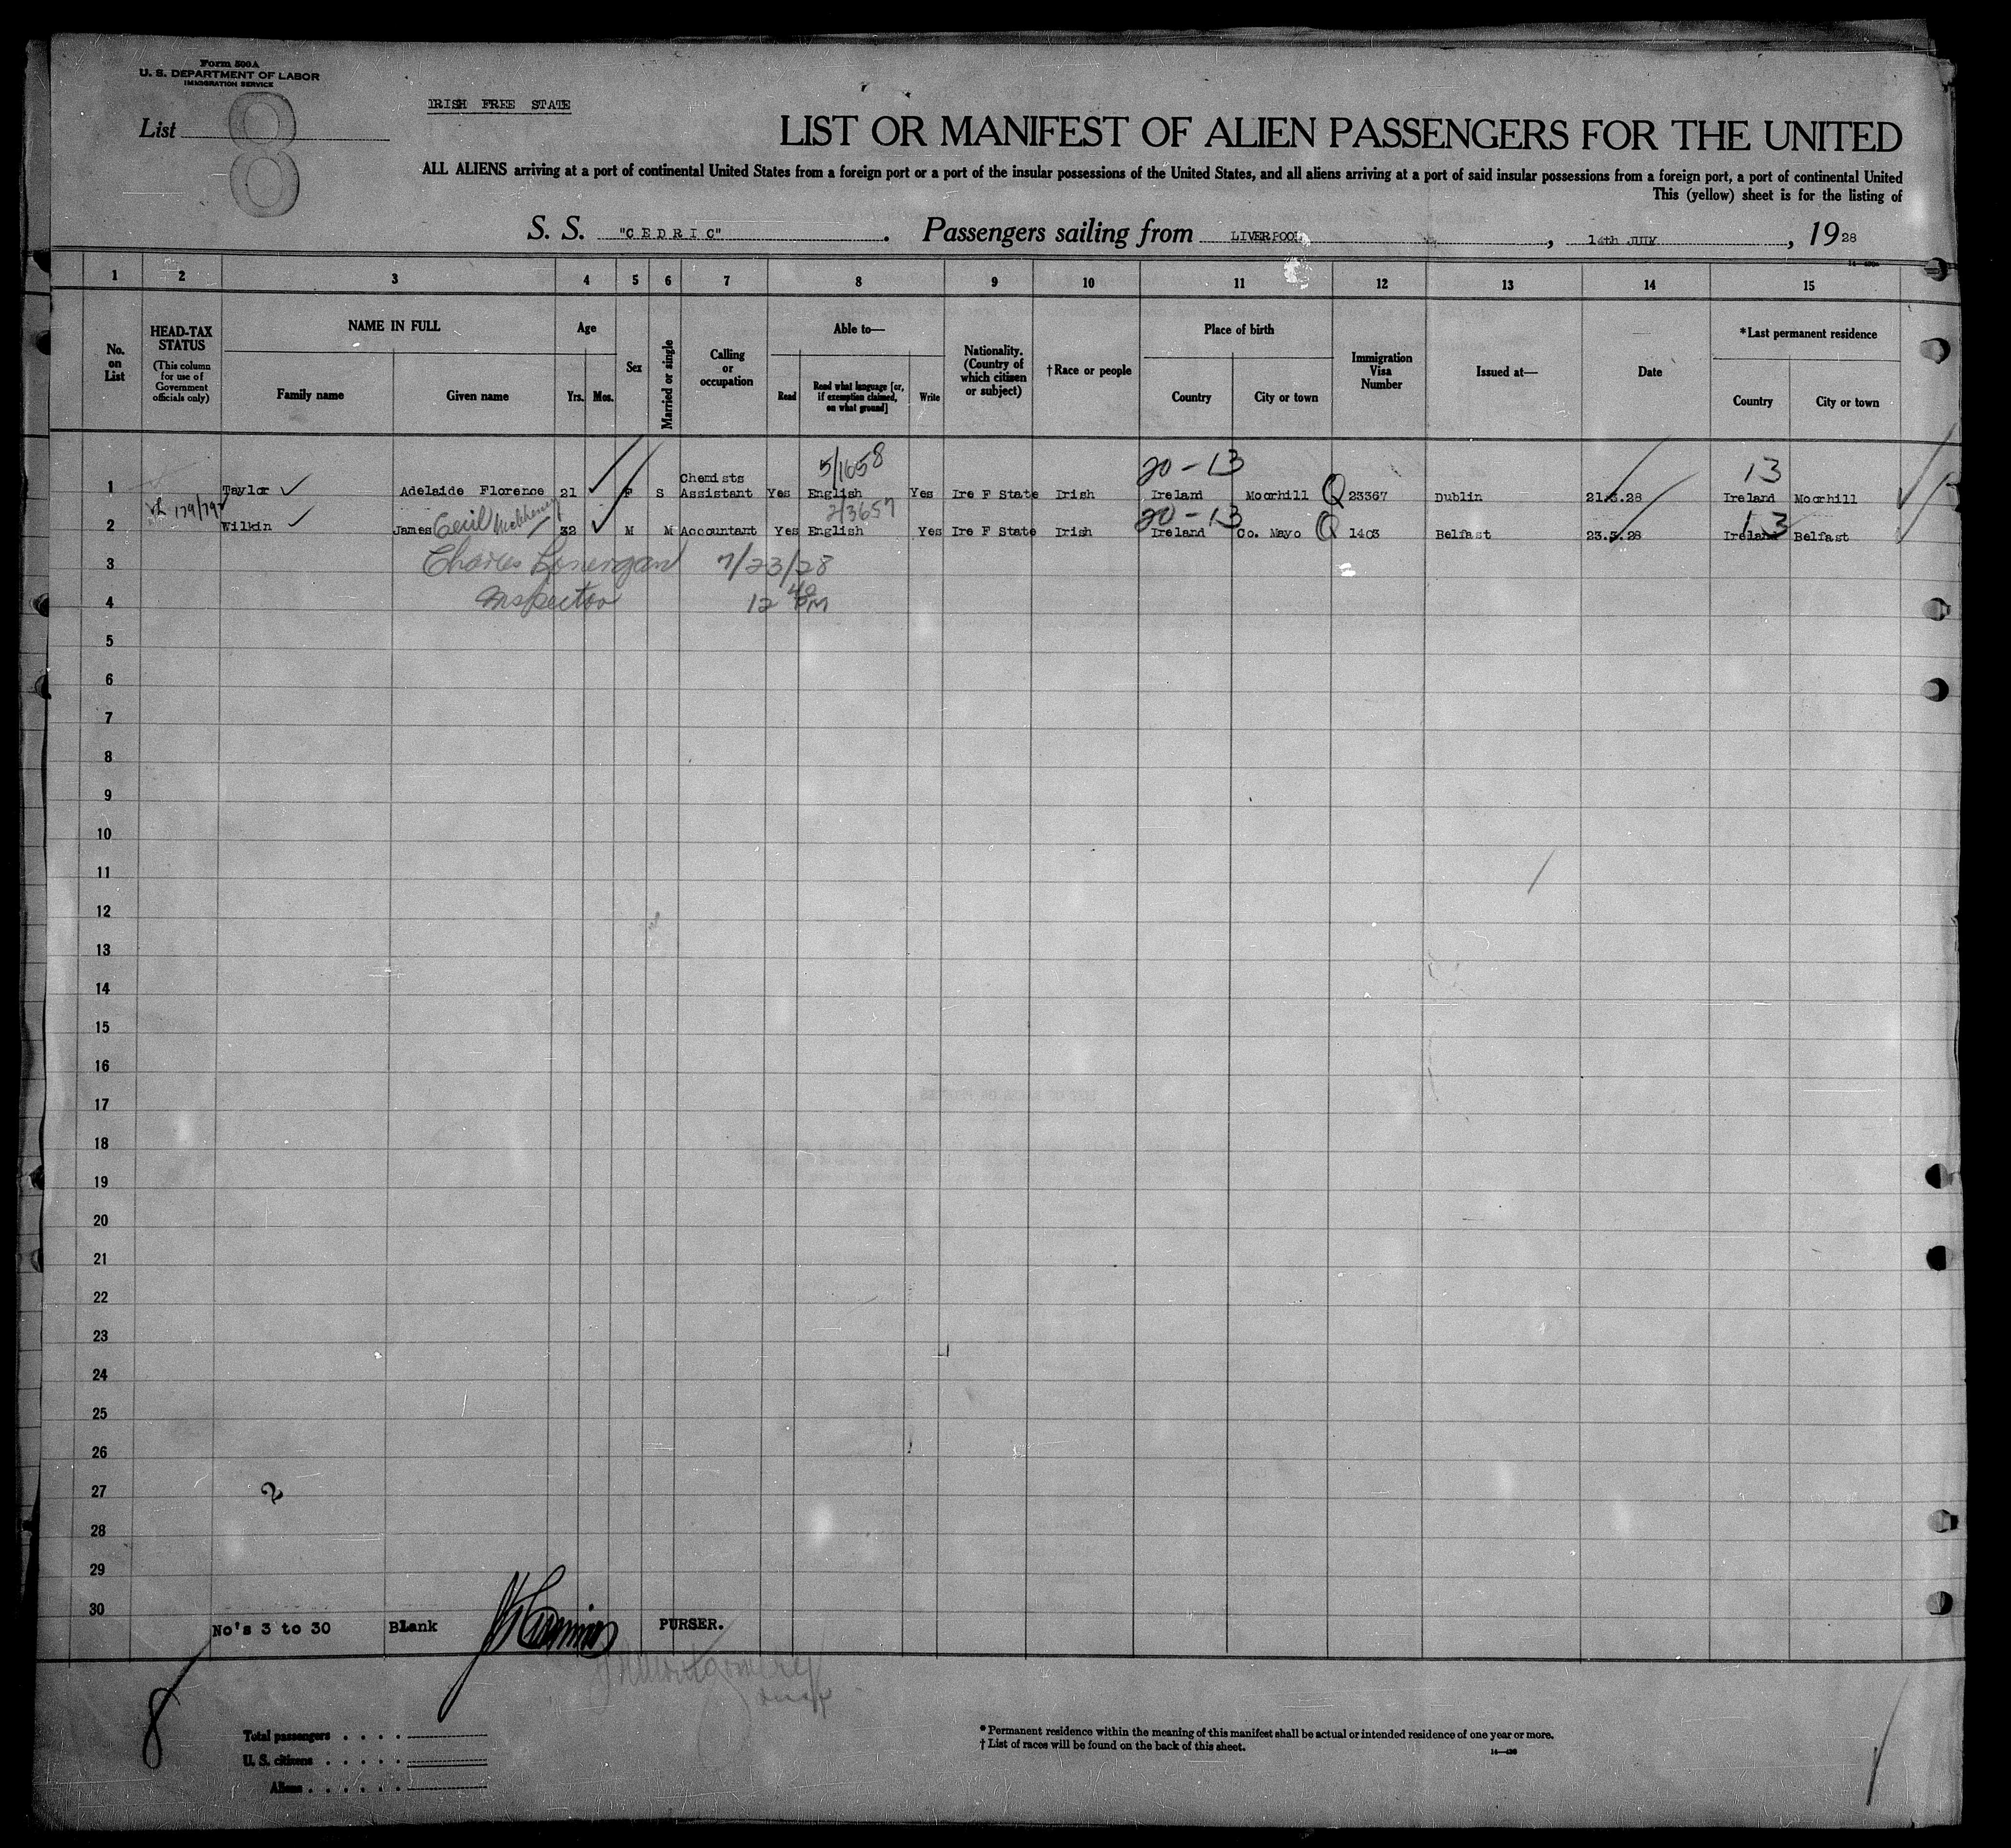 Form 500A
U. S. DEPARTMENT OF LABOR
IMMIGRATION SERVICE
IRISH FREE STATE
List 8
8
LIST OR MANIFEST OF ALIEN PASSENGERS FOR THE UNITED
ALL ALIENS arriving at a port of continental United States from a foreign port or a port of the insular possessions of the United States, and all aliens arriving at a port of said insular possessions from a foreign port, a port of continental United
This (yellow) sheet is for the listing of
S. S. "CEDRIC". Passengers sailing from LIVERPOOL, 14th JULY, 1928
1 2 3 4 5 6 7 8 9 10 11 12 13 14 15
No. on List
HEAD-TAX STATUS
(This column for use of Government officials only)
NAME IN FULL
Family name Given name
Age
Yrs. Mos.
Sex
Married or single
Calling or occupation
Able to—
Read Read what language [or, if exemption claimed, on what ground] Write
Nationality. (Country of which citizen or subject)
†Race or people
Place of birth
Country City or town
Immigration Visa Number
Issued at—
Date
*Last permanent residence
Country City or town
5/1658 20-13 13
1 Taylor Adelaide Florence 21 F S Chemists Assistant Yes English Yes Ire F State Irish Ireland Moorhill Q 23367 Dublin 21.3.28 Ireland Moorhill
179/792 2/3657 20-13 13
2 Wilkin James Cecil 32 M M Accountant Yes English Yes Ire F State Irish Ireland Co. Mayo Q 1403 Belfast 23.3.28 Ireland Belfast
3 Charles Lonergan 7/23/28
4 Inspector 12 40 PM
5
6
7
8
9
10
11
12
13
14
15
16
17
18
19
20
21
22
23
24
25
26
27 2
28
29
30
No's 3 to 30 Blank PURSER.
8
Total passengers . . . .
U. S. citizens . . . . .
Aliens . . . . . .
* Permanent residence within the meaning of this manifest shall be actual or intended residence of one year or more.
† List of races will be found on the back of this sheet.